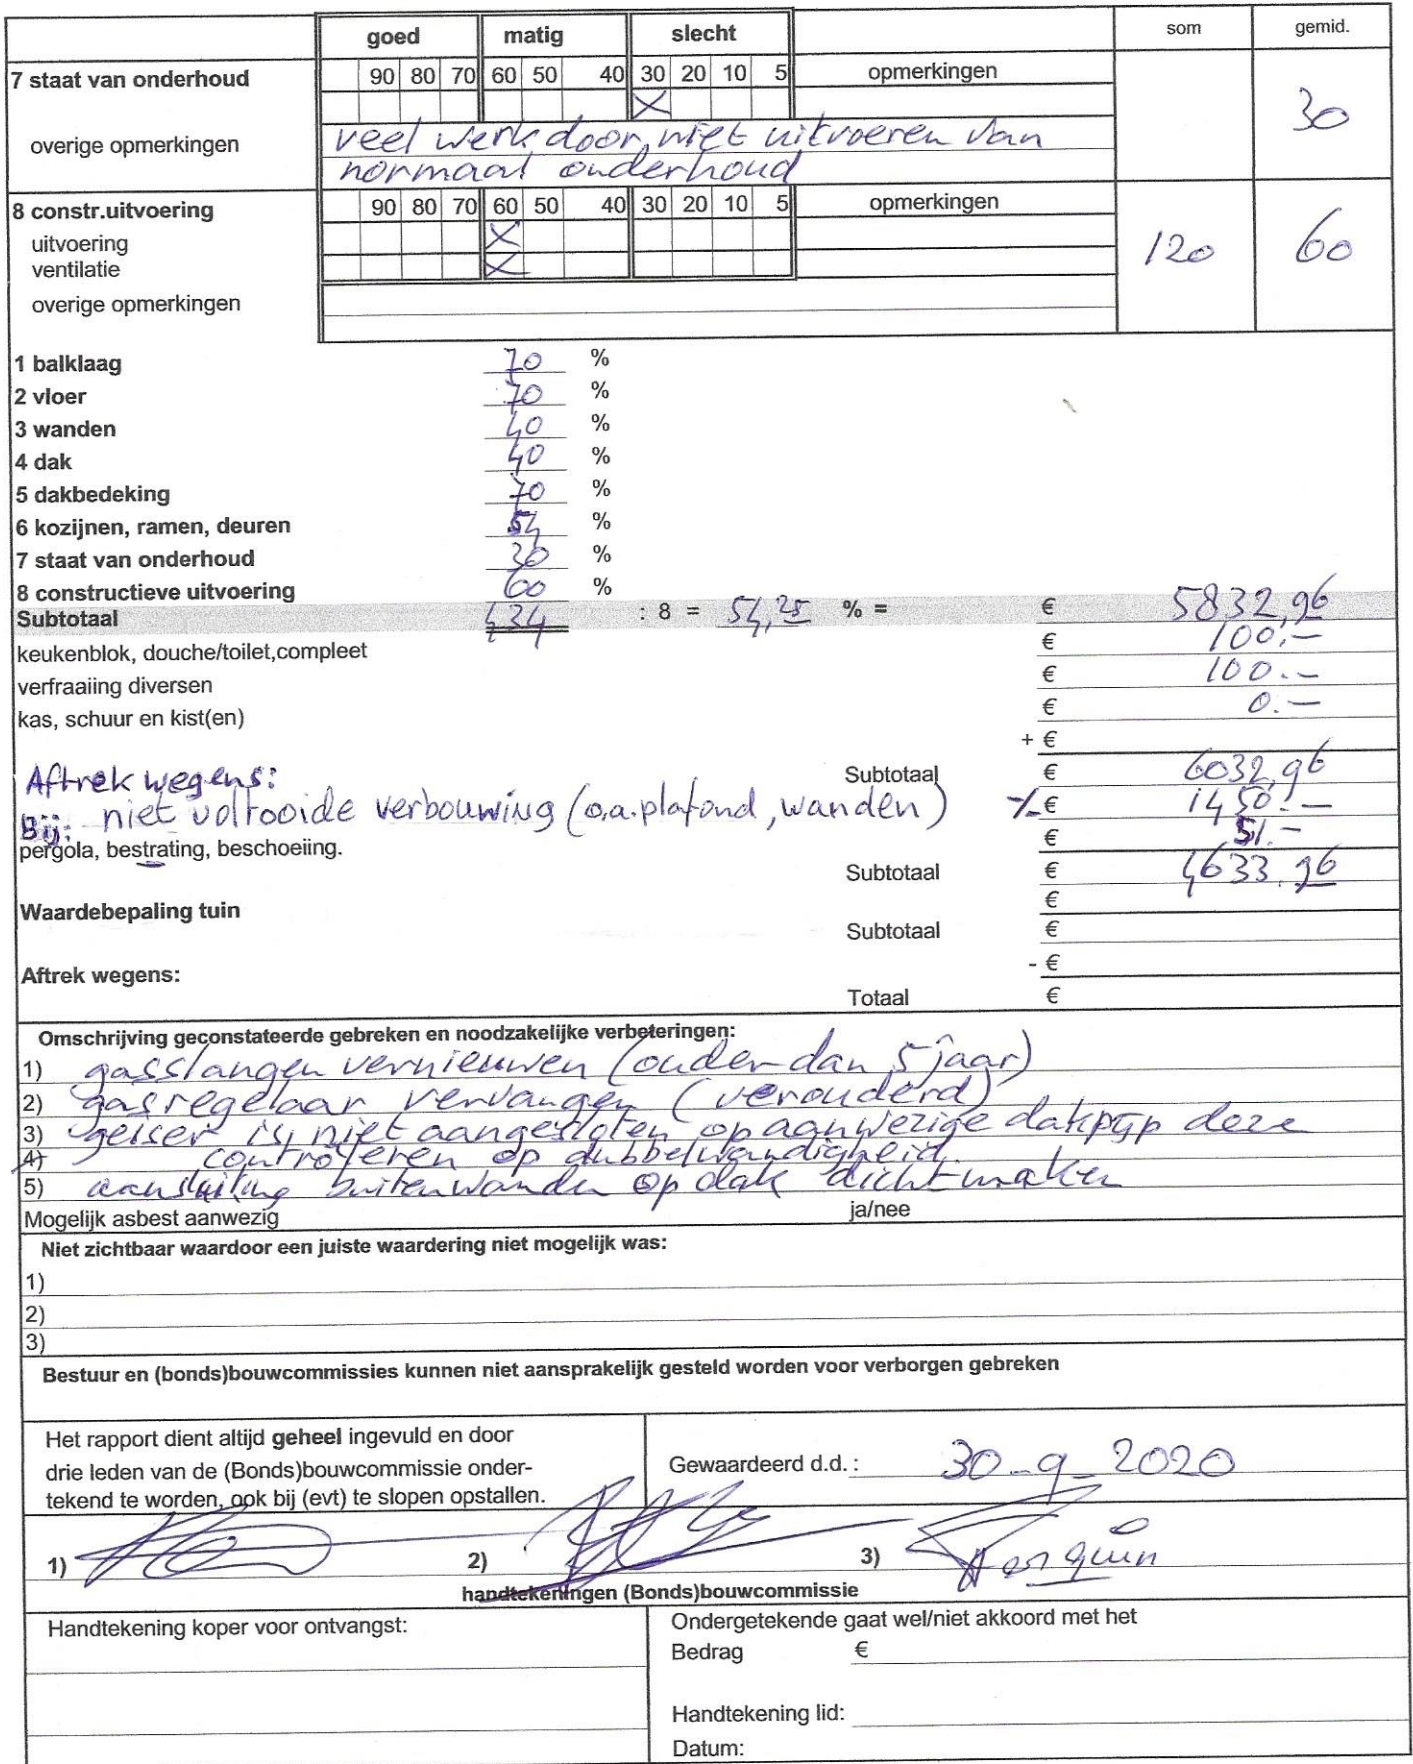 goed matig slecht som gemid.
7 staat van onderhoud 90 80 70 60 50 40 30 20 10 5 opmerkingen
X 30
overige opmerkingen veel werk door niet uitvoeren van
normaal onderhoud
8 constr.uitvoering 90 80 70 60 50 40 30 20 10 5 opmerkingen
uitvoering X 120 60
ventilatie X
overige opmerkingen
1 balklaag 70 %
2 vloer 70 %
3 wanden 40 %
4 dak 40 %
5 dakbedeking 70 %
6 kozijnen, ramen, deuren 54 %
7 staat van onderhoud 30 %
8 constructieve uitvoering 60 %
Subtotaal 434 : 8 = 54,25 % = € 5832,96
keukenblok, douche/toilet,compleet € 100,—
verfraaiing diversen € 100.—
kas, schuur en kist(en) € 0.—
+ €
Aftrek wegens: Subtotaal € 6032,96
niet voltooide verbouwing (o.a. plafond, wanden) -/- € 1450.—
Bij: € 51.—
pergola, bestrating, beschoeiing.
Subtotaal € 4633.96
Waardebepaling tuin €
Subtotaal €
Aftrek wegens: - €
Totaal €
Omschrijving geconstateerde gebreken en noodzakelijke verbeteringen:
1) gasslangen vernieuwen (ouder dan 5 jaar)
2) gasregelaar vervangen (verouderd)
3) geiser is niet aangesloten op aanwezige dakpijp deze
4) controleren op dubbelwandigheid.
5) aansluiting buitenwanden op dak dichtmaken
Mogelijk asbest aanwezig ja/nee
Niet zichtbaar waardoor een juiste waardering niet mogelijk was:
1)
2)
3)
Bestuur en (bonds)bouwcommissies kunnen niet aansprakelijk gesteld worden voor verborgen gebreken
Het rapport dient altijd geheel ingevuld en door
drie leden van de (Bonds)bouwcommissie onder-
tekend te worden, ook bij (evt) te slopen opstallen.
Gewaardeerd d.d.: 30-9-2020
1) 2) 3)
handtekeningen (Bonds)bouwcommissie
Handtekening koper voor ontvangst:
Ondergetekende gaat wel/niet akkoord met het
Bedrag €
Handtekening lid:
Datum: